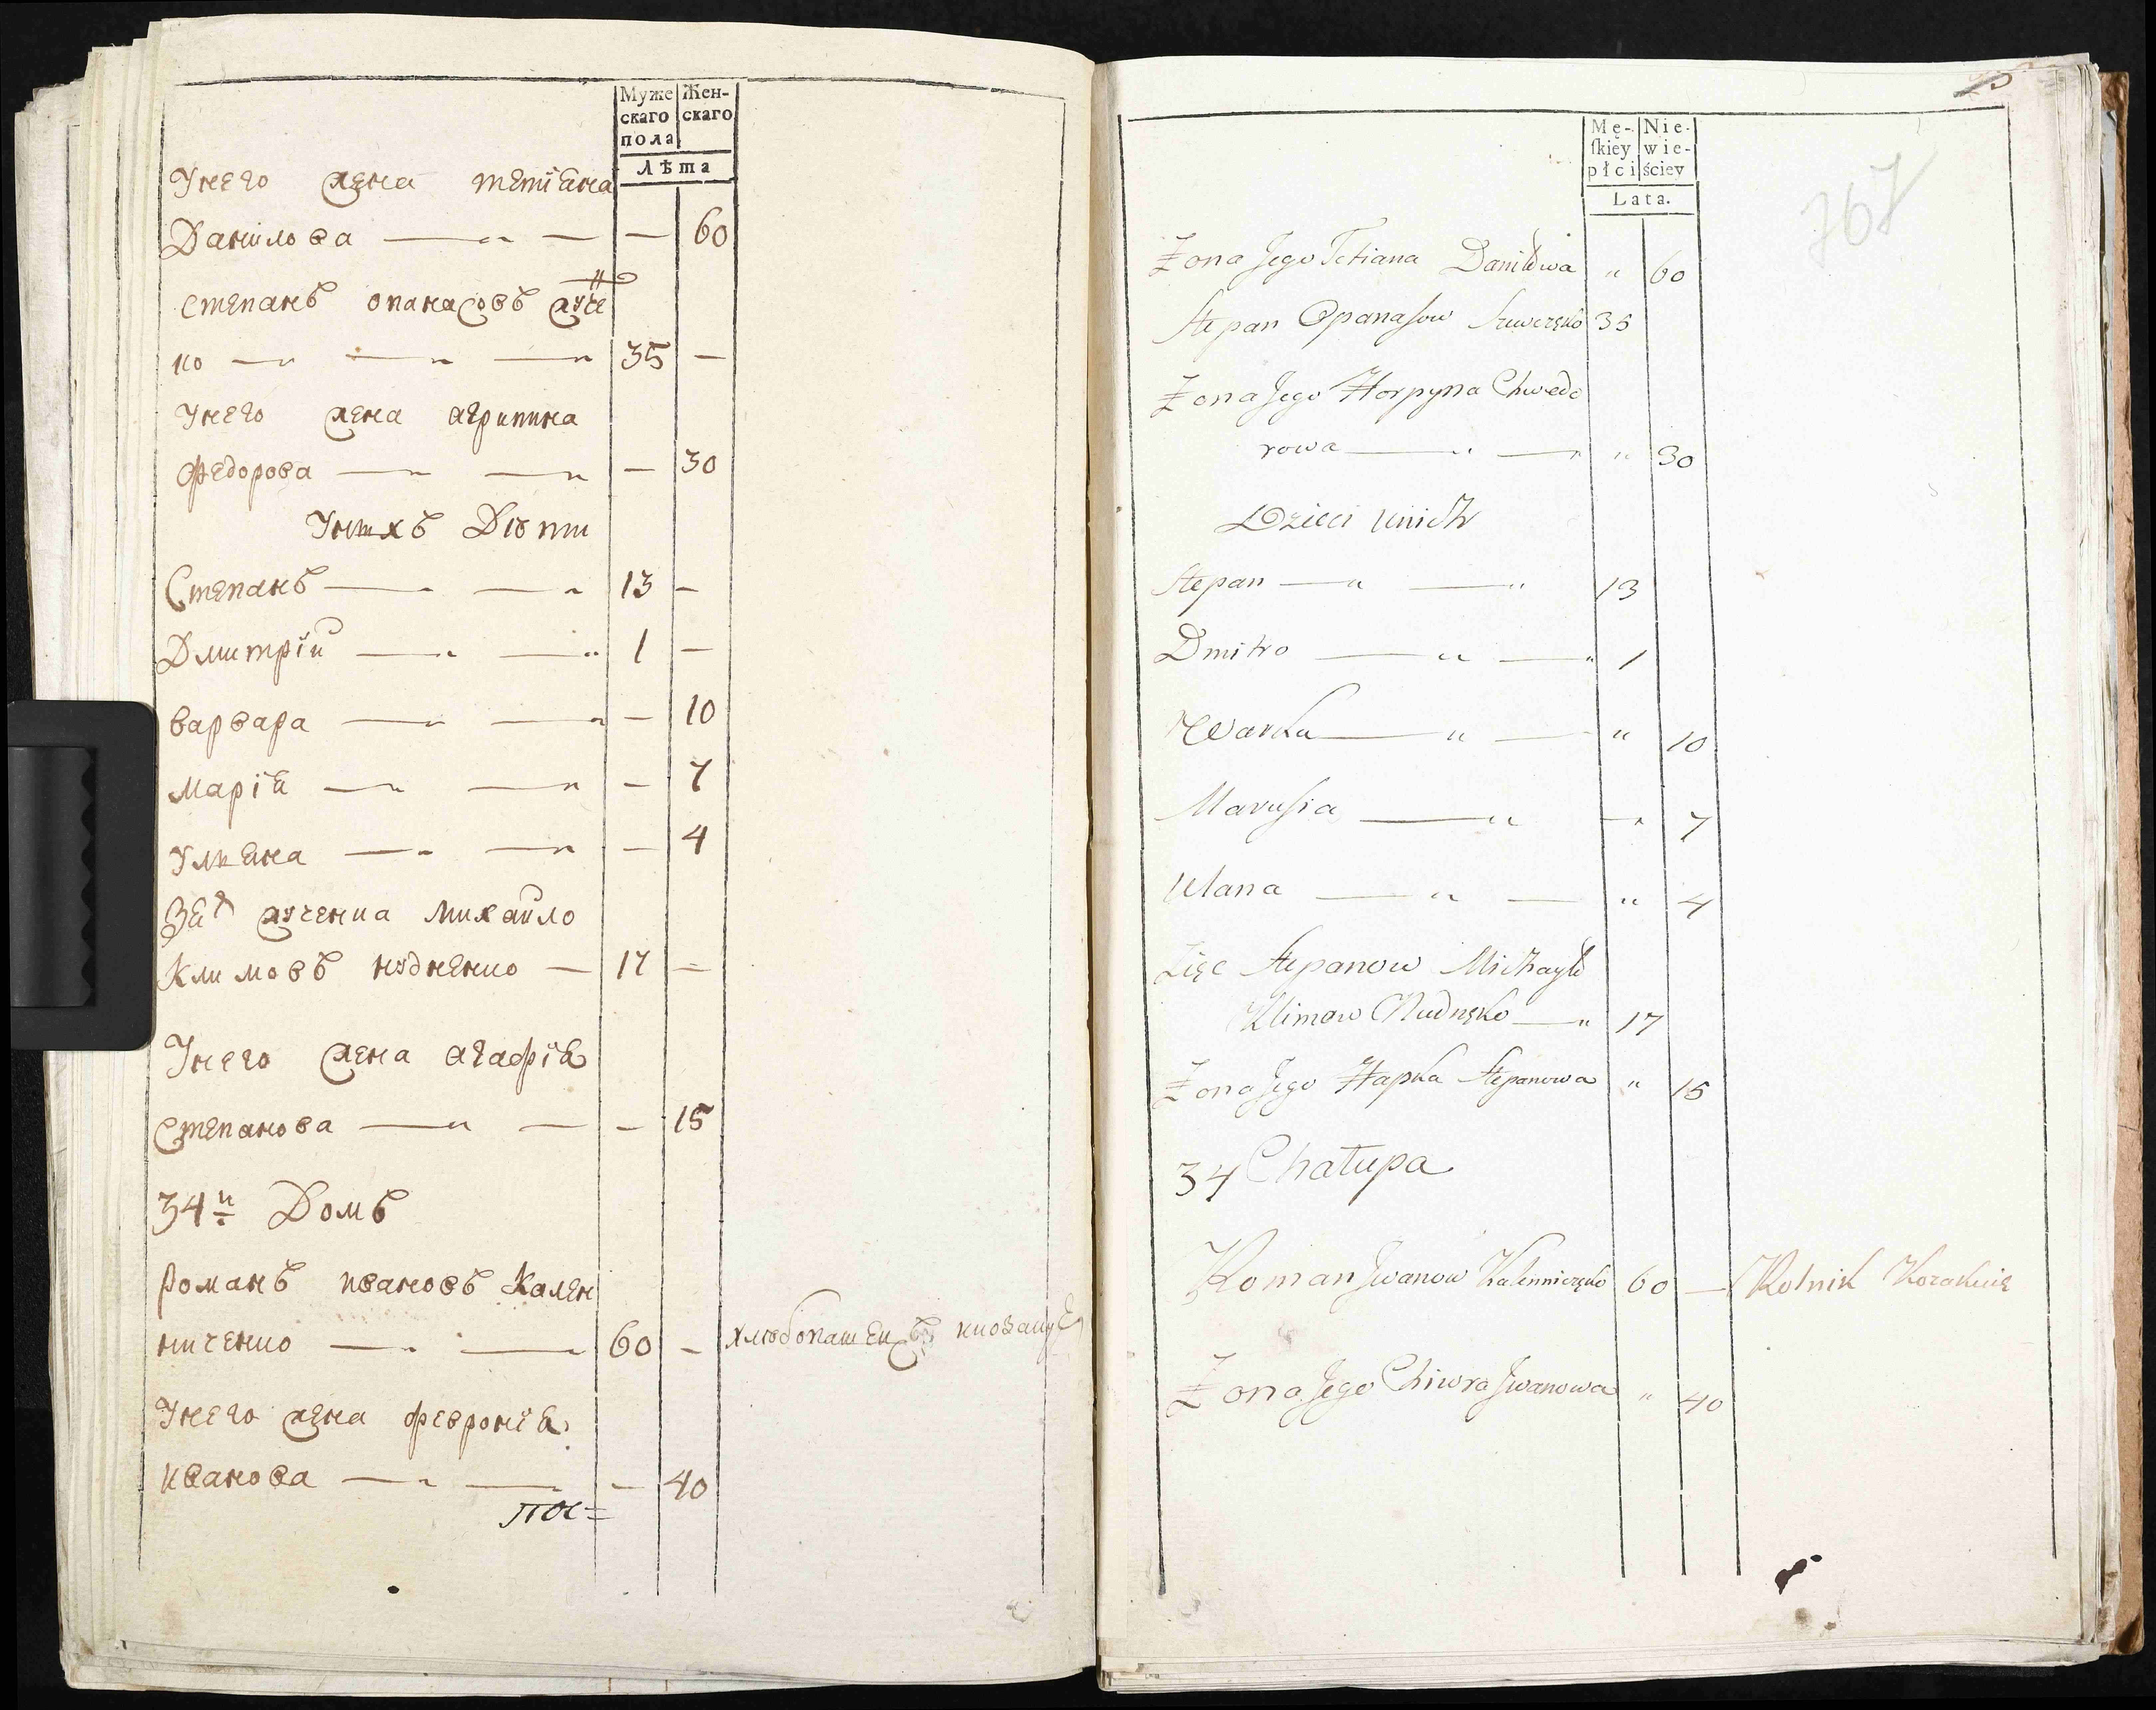 Муже
скаго
пола
Жен-
скаго
Лѣта
Унего жена тетiана
Данилова — " — — 60
степанъ опанасовъ жуче
нко — " — " — " 35 —
Унего жена агрипина
федорова — " — " — 30
Унихъ Дѣти
Степанъ — " — " 13 —
Дмитрiй — " — " 1 —
варвара — " — " — 10
марiя — " — " — 7
Ульяна — " — " — 4
Зят жученка михайло
Климовъ нудненко — 17 —
Унего жена агафiя
степанова — " — — 15
34й Домъ
романъ ивановъ Кален
ниченко — " — 60 — хлѣбопашецъ
Унего жена феврония
иванова — " — — 40
Mę-
ſkiey
płci
Nie-
wie-
ściey
Lata.
767
Żona Jego Tetiana Daniłowa " 60
Stepan Opanasow 35
Żona Jego Horpyna Chwedo
rowa — " — " " 30
Dzieci unich
Stepan — " — " 13
Dmitro — " — " 1
Warka — " — " 10
Marusia — " — " 7
Ulana — " — " 4
Zięć Stepanow Michayło
Klimow Nudnęko — " 17
Żona Jego Hapka Stepanowa " 15
34 Chałupa
Roman Jwanow Kalenniczęko 60 — Rolnik
Żona Jego Chiwra Jwanowa " 40